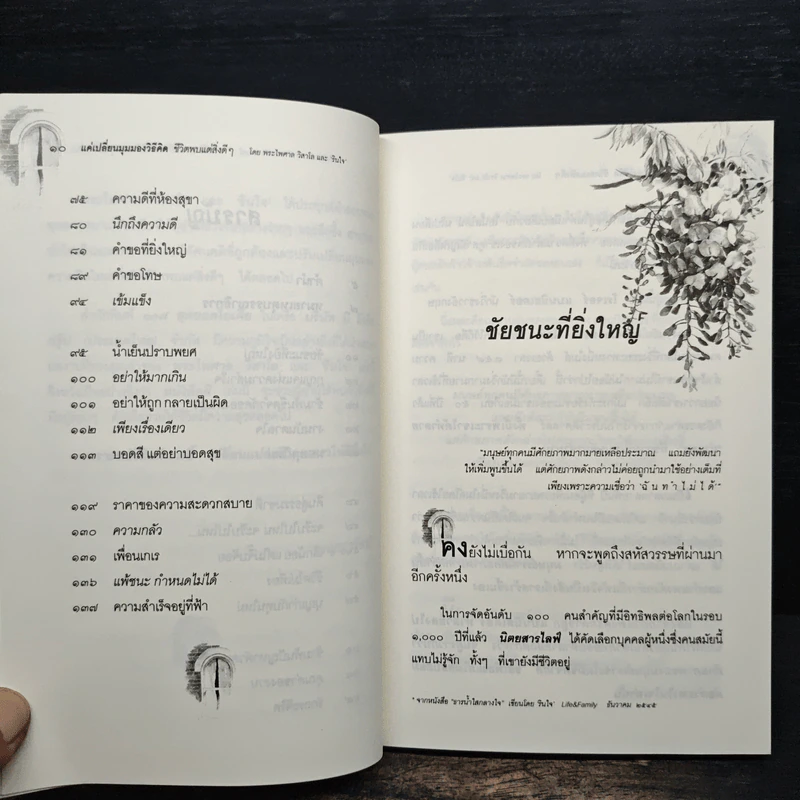 ๑๐ แค่เปลี่ยนมุมมองวิธีคิด ชีวิตพบแต่สิ่งดีๆ โดย พระไพศาล วิสาโล และ 'รินใจ'
๗๕ ความดีที่ห้องสุขา
๘๐ นึกถึงความดี
๘๑ คำขอที่ยิ่งใหญ่
๘๙ คำขอโทษ
๙๔ เข้มแข็ง
๙๕ น้ำเย็นปราบพยศ
๑๐๐ อย่าให้มากเกิน
๑๐๑ อย่าให้ถูก กลายเป็นผิด
๑๑๒ เพียงเรื่องเดียว
๑๑๓ บอดสี แต่อย่าบอดสุข
๑๑๙ ราคาของความสะดวกสบาย
๑๓๐ ความกลัว
๑๓๑ เพื่อนเกเร
๑๓๖ แพ้ชนะ กำหนดไม่ได้
๑๓๗ ความสำเร็จอยู่ที่ฟ้า
ชัยชนะที่ยิ่งใหญ่*
"มนุษย์ทุกคนมีศักยภาพมากมายเหลือประมาณ แถมยังพัฒนา
ให้เพิ่มพูนขึ้นได้ แต่ศักยภาพดังกล่าวไม่ค่อยถูกนำมาใช้อย่างเต็มที่
เพียงเพราะความเชื่อว่า 'ฉั น ท ำ ไ ม่ ไ ด้ '"
คงยังไม่เบื่อกัน หากจะพูดถึงสหัสวรรษที่ผ่านมา
อีกครั้งหนึ่ง
ในการจัดอันดับ ๑๐๐ คนสำคัญที่มีอิทธิพลต่อโลกในรอบ
๑,๐๐๐ ปีที่แล้ว นิตยสารไลฟ์ ได้คัดเลือกบุคคลผู้หนึ่งซึ่งคนสมัยนี้
แทบไม่รู้จัก ทั้งๆ ที่เขายังมีชีวิตอยู่
* จากหนังสือ "ธารน้ำใสกลางใจ" เขียนโดย 'รินใจ' Life&Family ธันวาคม ๒๕๔๕